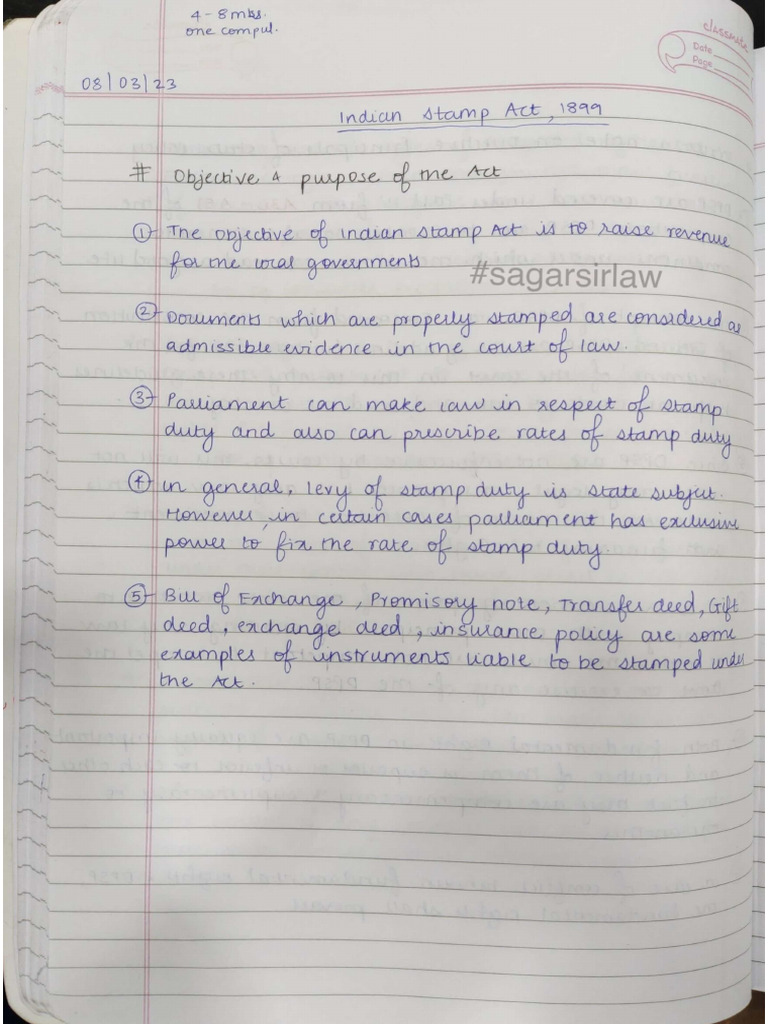 4 - 8 mks.
one compul.
classmate
Date
Page
08/03/23
Indian Stamp Act, 1899
# Objective & purpose of the Act
① The objective of Indian Stamp Act is to raise revenue
for the local governments
#sagarsirlaw
② Documents which are properly stamped are considered as
admissible evidence in the court of law.
③ Parliament can make law in respect of stamp
duty and also can prescribe rates of stamp duty
④ In general, levy of stamp duty is state subject.
However, in certain cases parliament has exclusive
power to fix the rate of stamp duty
⑤ Bill of Exchange, Promisory note, Transfer deed, Gift
deed, exchange deed, insurance policy are some
examples of instruments liable to be stamped under
the Act.